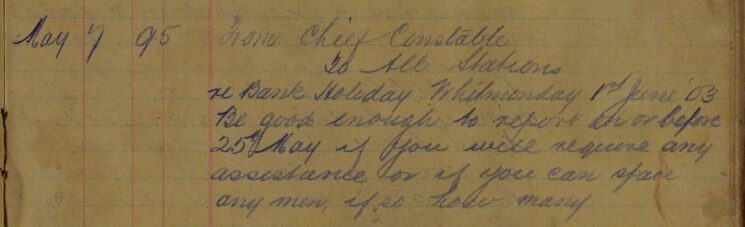 May 7 95 From Chief Constable
To All Stations
re Bank Holiday Whitmonday 1st June '03
Be good enough to report on or before
25th May if you will require any
assistance or if you can spare
any men, if so how many